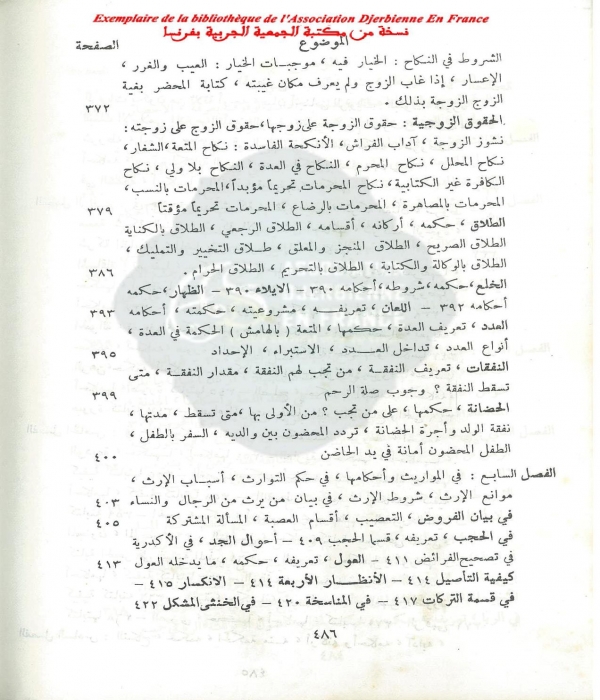 Exemplaire de la bibliothèque de l'Association Djerbienne En France
نسخة من مكتبة الجمعية الجربية بفرنسا
الموضوع الصفحة
الشروط في النكاح : الخيار فيه ، موجبات الخيار : العيب والغرر ،
الإعسار ، إذا غاب الزوج ولم يعرف مكان غيبته ، كتابة المحضر بفية
الزوج الزوجة بذلك . ٣٧٢
الحقوق الزوجية : حقوق الزوجة على زوجها،حقوق الزوج على زوجته :
نشوز الزوجة ، آداب الفراش ، الأنكحة الفاسدة : نكاح المتعة،الشغار،
نكاح المحلل ، نكاح المحرم ، النكاح في العدة ، النكاح بلا ولي ، نكاح
الكافرة غير الكتابية، نكاح المحرمات تحريماً مؤبداً،المحرمات بالنسب،
المحرمات بالمصاهرة ، المحرمات بالرضاع ، المحرمات تحريماً مؤقتاً ٣٧٩
الطلاق ، حكمه ، أركانه ، أقسامه ، الطلاق الرجعي ، الطلاق بالكناية
الطلاق الصريح ، الطلاق المنجز والمعلق ، طلاق التخيير والتمليك ،
الطلاق بالوكالة والكتابة ، الطلاق بالتحريم ، الطلاق الحرام . ٣٨٦
الخلع ،حكمه،شروطه،أحكامه ٣٩٠ – الايلاء ٣٩٠ – الظهار،حكمه
أحكامه ٣٩٢ – اللعان ، تعريفه ، مشروعيته ، حكمته ، أحكامه ٣٩٣
العدد ، تعريف العدة ، حكمها ، المتعة ( بالهامش ) الحكمة في العدة ،
أنواع العدد ، تداخل العدد ، الاستبراء ، الإحداد ٣٩٥
النفقات ، تعريف النفقة ، من تجب لهم النفقة ، مقدار النفقة ، متى
تسقط النفقة ؟ وجوب صلة الرحم ٣٩٩
الحضانة ، حكمها ، على من تجب ؟ من الأولى بها ،متى تسقط ، مدتها ،
نفقة الولد وأجرة الحضانة ، تردد المحضون بين والديه ، السفر بالطفل ،
الطفل المحضون أمانة في يد الحاضن ٤٠٠
الفصل السابع : في المواريث وأحكامها ، في حكم التوارث ، أسباب الإرث ،
موانع الإرث ، شروط الإرث ، في بيان من يرث من الرجال والنساء ٤٠٣
في بيان الفروض ، التعصيب ، أقسام العصبة ، المسألة المشتركة ٤٠٥
في الحجب ، تعريفه ، قسما الحجب ٤٠٩ – أحوال الجد ، في الأكدرية
في تصحيح الفرائض ٤١١ – العول ، تعريفه ، حكمه ، ما يدخله العول ٤١٣
كيفية التأصيل ٤١٤ – الأنظار الأربعة ٤١٤ – الانكسار ٤١٥ –
في قسمة التركات ٤١٧ – في المناسخة ٤٢٠ – في الخنثى المشكل ٤٢٢
٤٨٦